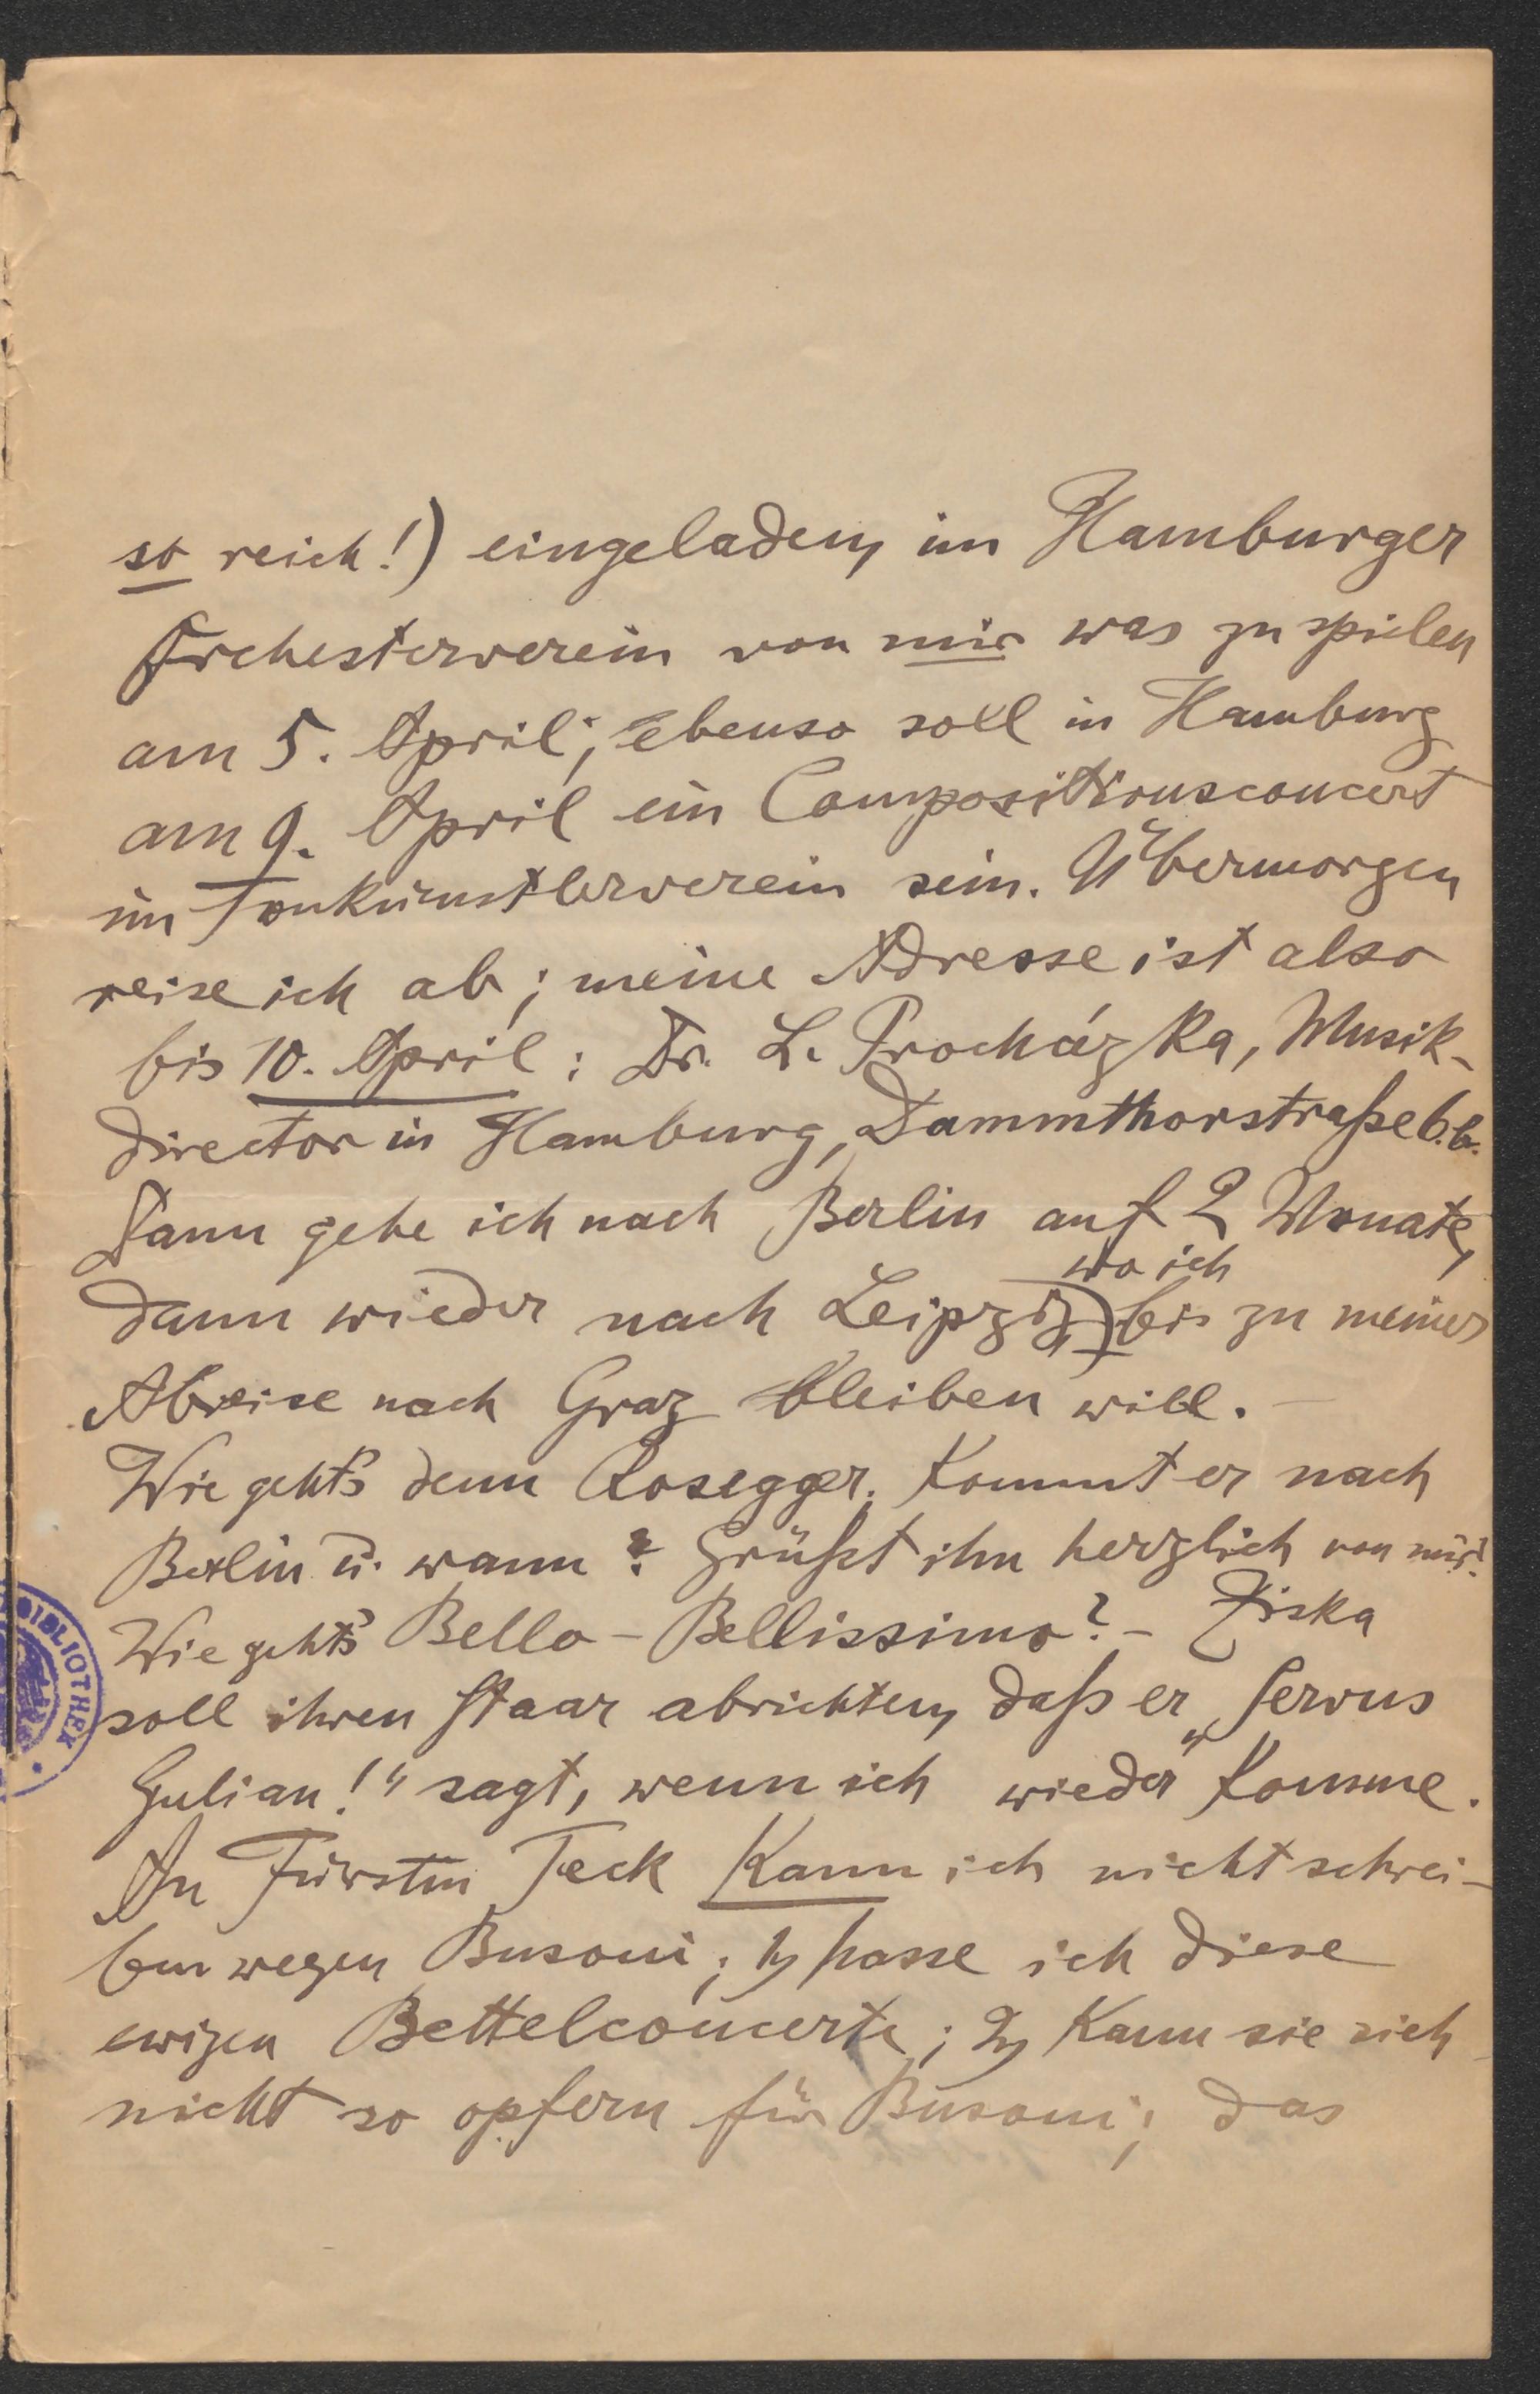 so reich!) eingeladen, im Hamburger
Orchesterverein von mir was zu spielen
am 5. April; ebenso soll in Hamburg
am 9. April ein Compositionsconcert
im Tonkünstlerverein sein. Übermorgen
reise ich ab; meine Adresse ist also
bis 10. April: Dr. L. Procházka, Musik-
director in Hamburg, Dammthorstraße 6.b.
Dann gehe ich nach Berlin auf 2 Monate,
wo ich
dann wieder nach Leipzig, bis zu meiner
Abreise nach Graz bleiben will. –
Wie geht's denn Rosegger. Kommt er nach
Berlin u. wann? Grüßt ihn herzlich von mir!
Wie geht's Bello-Bellissimo? – Ziska
soll ihren Staar abrichten, daß er „Servus
Gulian!" sagt, wenn ich wieder komme.
An Fürstin Teck kann ich nicht schrei-
ben wegen Busoni; 1) hasse ich diese
ewigen Bettelconcerte; 2) kann sie sich
nicht so opfern für Busoni; das
BIBLIOTHEK